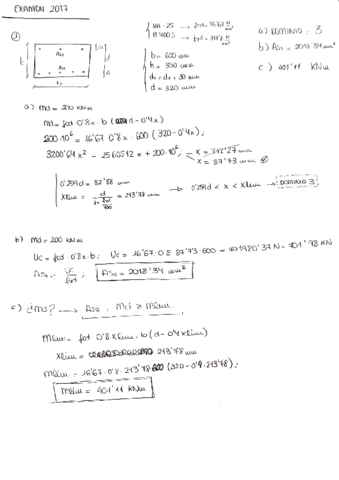 EXAMEN 2017
HA-25 → fcd = 16'67 N/mm²
B400S → fyd =
b = 600 mm
h = 350 mm
d = 320 mm
a) DOMINIO: 3
b) As1 = 2018'34 mm²
c) 401'11 KNm
a) Md = 200 KNm
Md = fcd · 0'8x · b (d - 0'4x)
200·10⁶ = 16'67 · 0'8x · 600 (320 - 0'4x);
x = 87'73 mm
0'259d = 82'88 mm
Xlim = = 213'78 mm → 0'259d < x < Xlim → DOMINIO 3
b) Md = 200 KNm
Uc = fcd · 0'8x · b; Uc = 16'67 · 0'8 · 87'73 · 600 = 701'98 KN
As1 = Uc/fyd; As1 = 2018'34 mm²
c) ¿Md? → As2 : Md ≥ Mlim
Mlim = fcd · 0'8xlim · b (d - 0'4xlim)
Xlim = 213'78 mm
Mlim = 16'67 · 0'8 · 213'78 · 600 (320 - 0'4 · 213'78);
Mlim = 401'11 KNm